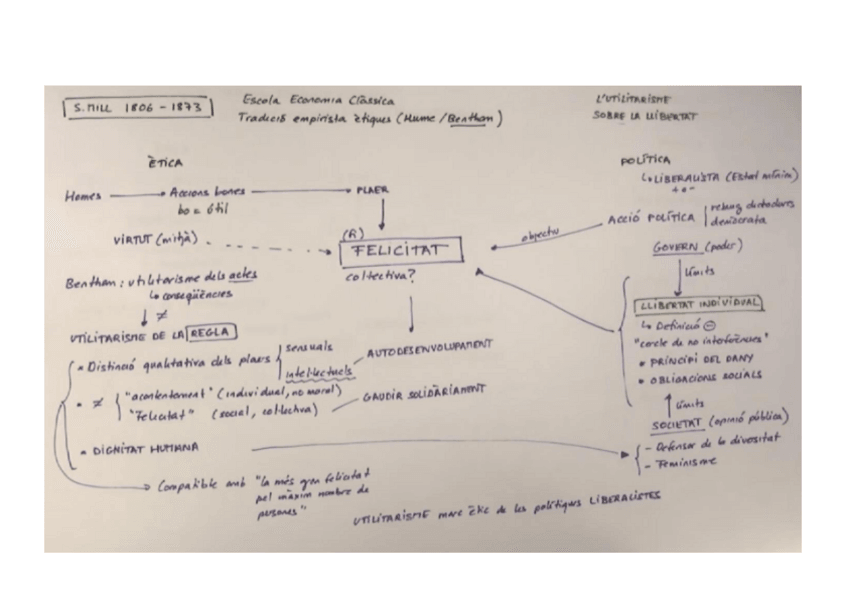 S. MILL 1806 - 1873
Escola Economia Clàssica
Tradició empirista ètiques (Hume / Benthan)
L'UTILITARISME
SOBRE LA LLIBERTAT
ÈTICA
Homes → Accions bones → PLAER
bo = útil
VIRTUT (mitjà)
(R)
FELICITAT
col·lectiva?
Benthan: utilitarisme dels actes
↳ conseqüències
≠
UTILITARISME DE LA REGLA
Distinció qualitativa dels plaers
sensuals
intel·lectuals
AUTODESENVOLUPAMENT
≠
"acontentament" (individual, no moral)
"Felicitat" (social, col·lectiva)
GAUDIR SOLIDÀRIAMENT
DIGNITAT HUMANA
Compatible amb "la més gran felicitat
pel màxim nombre de
persones"
POLÍTICA
↳ LIBERALISTA (Estat mínim)
+ o -
ACCIÓ POLÍTICA
rebuig dictadures
demòcrata
objectiu
GOVERN (poder)
límits
LLIBERTAT INDIVIDUAL
↳ Definició ⊖
"cercle de no interferències"
• PRINCIPI DEL DANY
• OBLIGACIONS SOCIALS
límits
SOCIETAT (opinió pública)
- Defensor de la diversitat
- Feminisme
UTILITARISME marc ètic de les polítiques LIBERALISTES